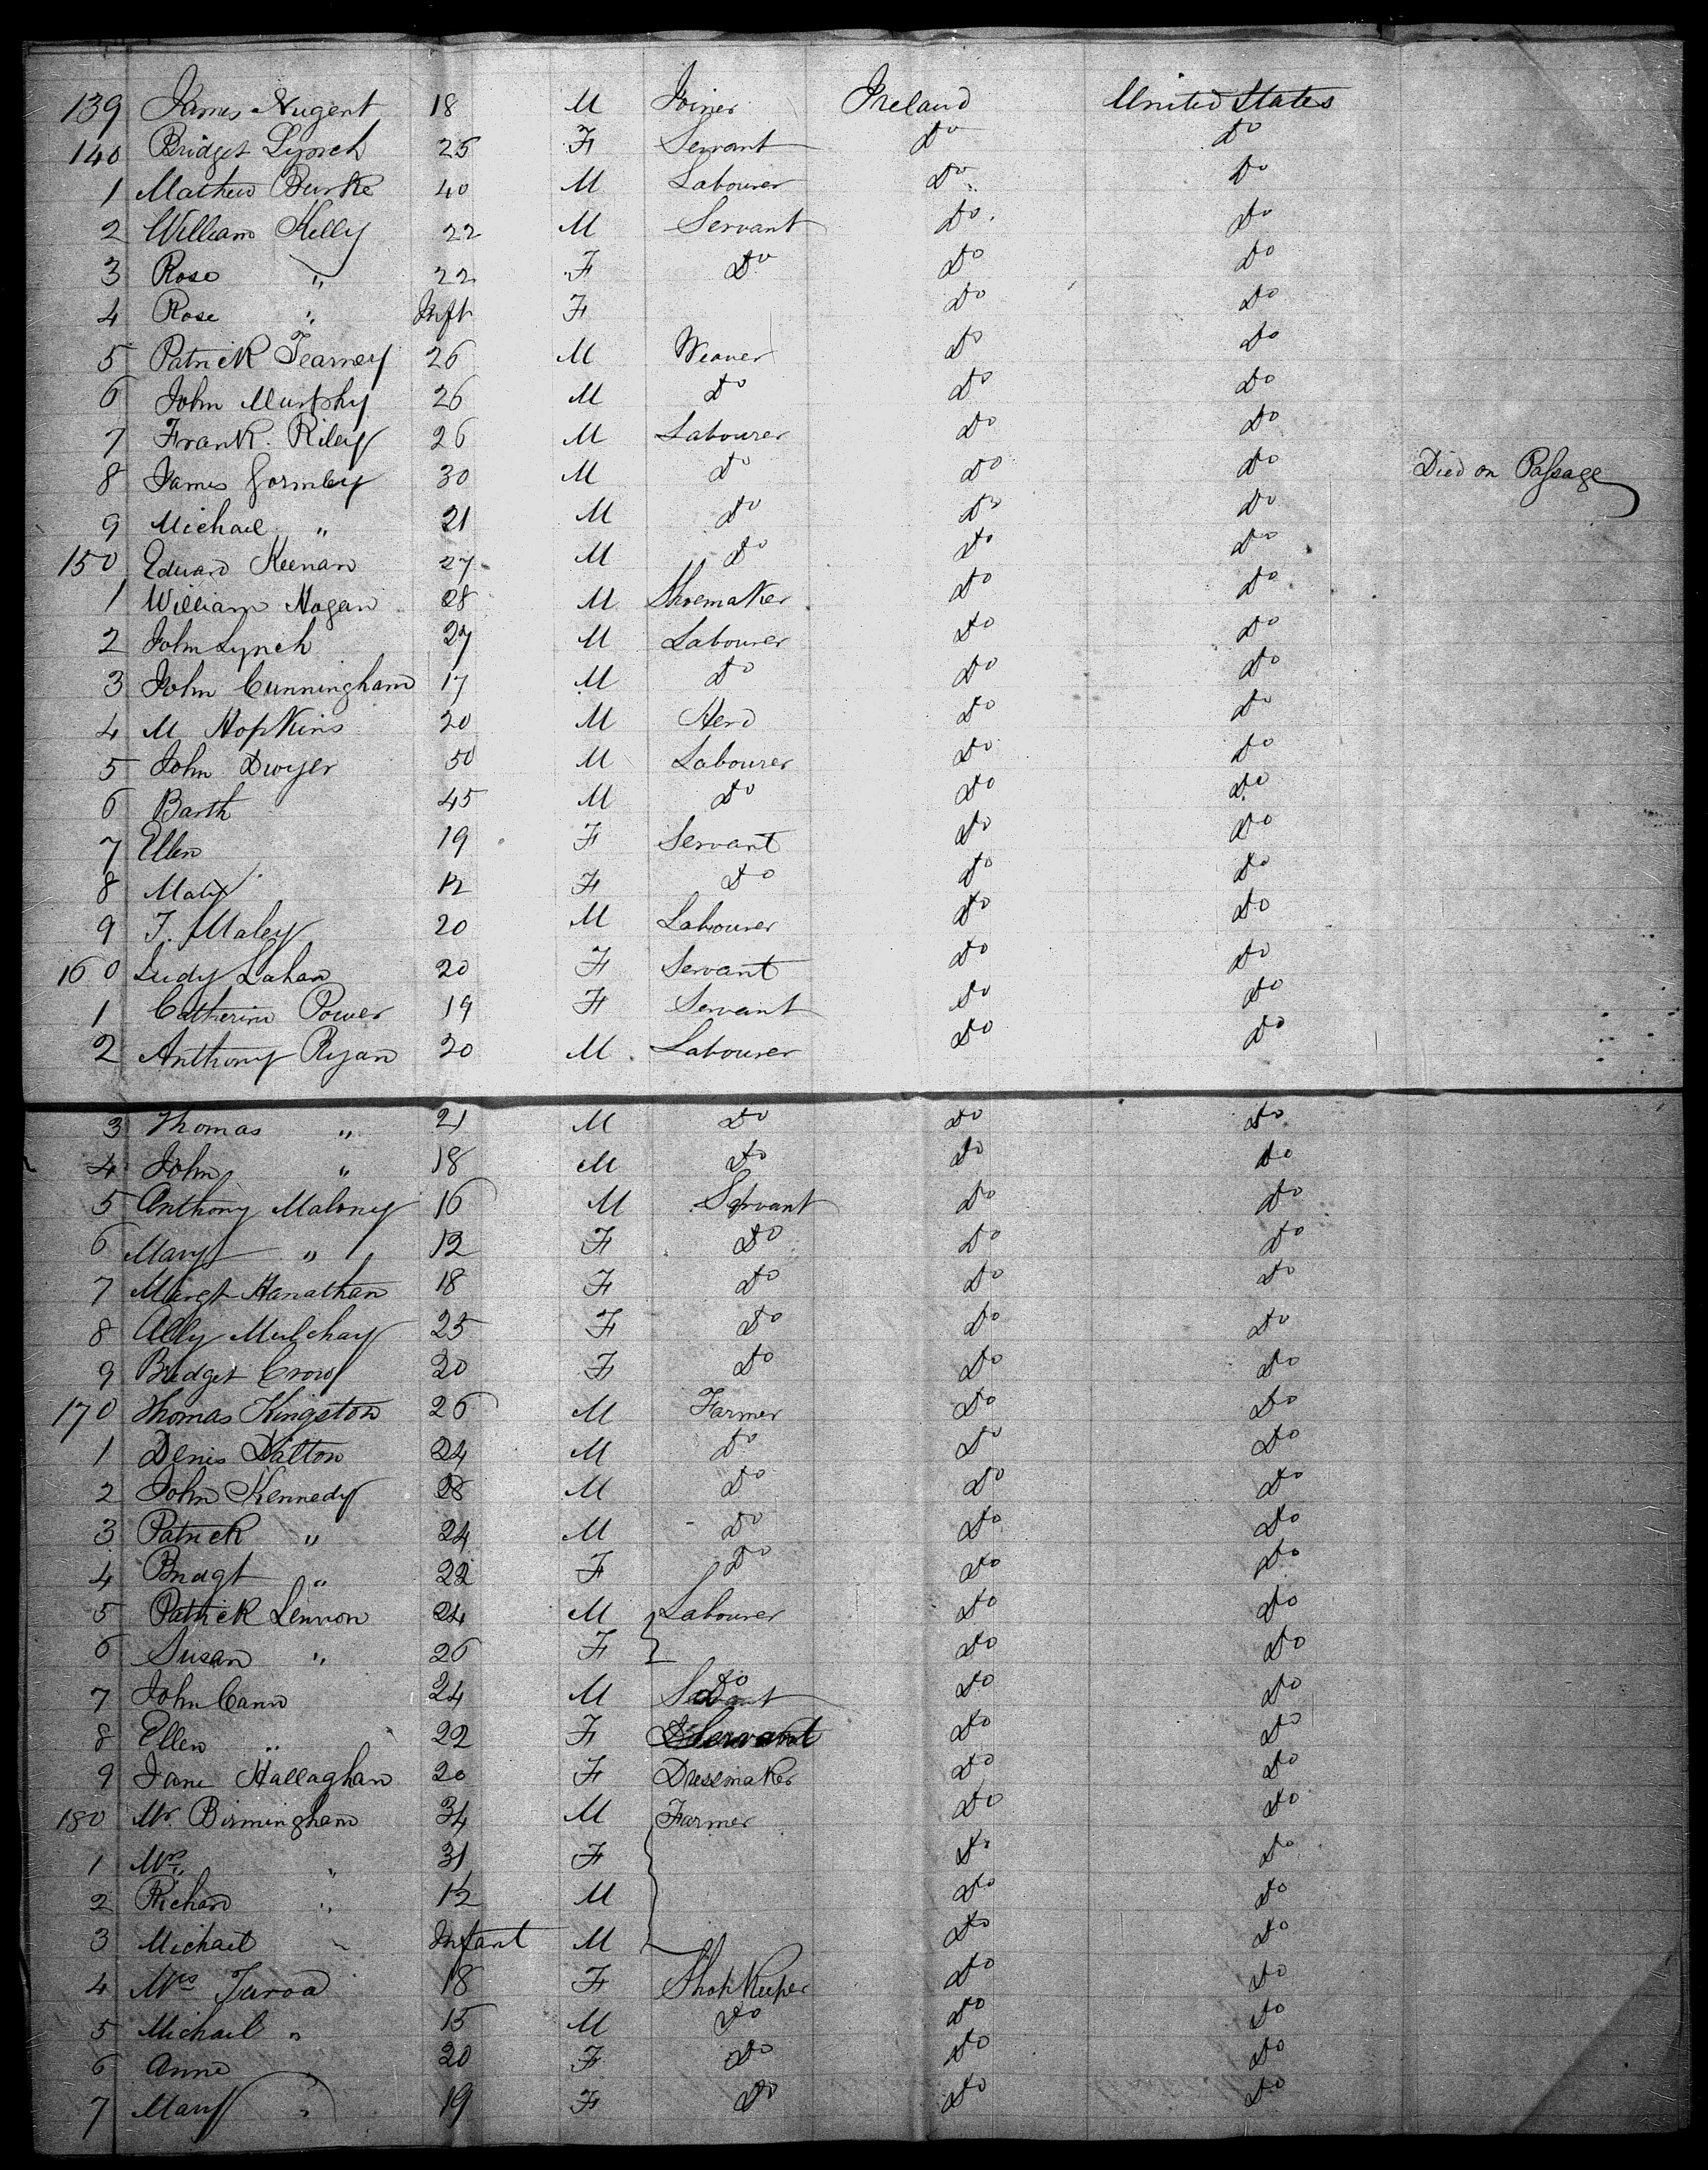 139 James Nugent 18 M Joiner Ireland United States
140 Bridget Lynch 25 F Servant Do Do
1 Mathew Burke 40 M Labourer Do Do
2 William Kelly 22 M Servant Do Do
3 Rose " 22 F Do Do Do
4 Rose " Inft F Do Do
5 Patrick Fearney 26 M Weaver Do Do
6 John Murphy 26 M Do Do Do
7 Frank Riley 26 M Labourer Do Do
8 James Gormley 30 M Do Do Do Died on Passage
9 Michael " 21 M Do Do Do
150 Edward Keenan 27 M Do Do Do
1 William Hogan 28 M Shoemaker Do Do
2 John Lynch 27 M Labourer Do Do
3 John Cunningham 17 M Do Do Do
4 M Hopkins 20 M Herd Do Do
5 John Dwyer 50 M Labourer Do Do
6 Barth 45 M Do Do Do
7 Ellen 19 F Servant Do Do
8 Maly 12 F Do Do Do
9 T. Maley 20 M Labourer Do Do
160 Judy Lahan 20 F Servant Do Do
1 Catherine Power 19 F Servant Do Do
2 Anthony Ryan 20 M Labourer Do Do
3 Thomas " 21 M Do Do Do
4 John " 18 M Do Do Do
5 Anthony Malony 16 M Servant Do Do
6 Mary " 12 F Do Do Do
7 Margt Hanathan 18 F Do Do Do
8 Ally Mulchay 25 F Do Do Do
9 Bridget Crow 20 F Do Do Do
170 Thomas Kingston 26 M Farmer Do Do
1 Denis Dalton 24 M Do Do Do
2 John Kennedy 28 M Do Do Do
3 Patrick " 24 M Do Do Do
4 Bridgt " 22 F Do Do Do
5 Patrick Lennon 24 M Labourer Do Do
6 Susan " 26 F Do Do
7 John Cann 24 M Do Do Do
8 Ellen " 22 F Servant Do Do
9 Jane Hallaghan 20 F Dressmaker Do Do
180 Mr. Birmingham 34 M Farmer Do Do
1 Mrs " 31 F Do Do
2 Richard " 12 M Do Do
3 Michael " Infant M Do Do
4 Mrs 18 F Shop Keeper Do Do
5 Michael " 15 M Do Do Do
6 Anne " 20 F Do Do Do
7 Mary " 19 F Do Do Do